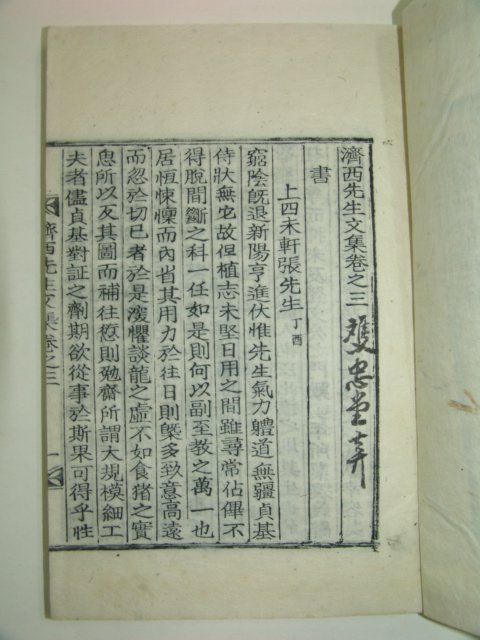 濟西先生文集卷之三
雙忠堂
書
上四未軒張先生 丁酉
窮陰旣退新陽亨進伏惟先生氣力軆道無疆貞基
侍狀無他故但植志未堅日用之間雖尋常佔僤不
得脫間斷之科一任如是則何以副至敎之萬一也
居恒悚懍而內省其用力於往日則槩多致意高遠
而忽於切己者於是瀅懼談龍之虛不如食猪之實
思所以反其圖而補往愆則勉齋所謂大規模細工
夫者儘貞基對証之劑期欲從事於斯果可得乎性
濟西先生文集卷之三
一